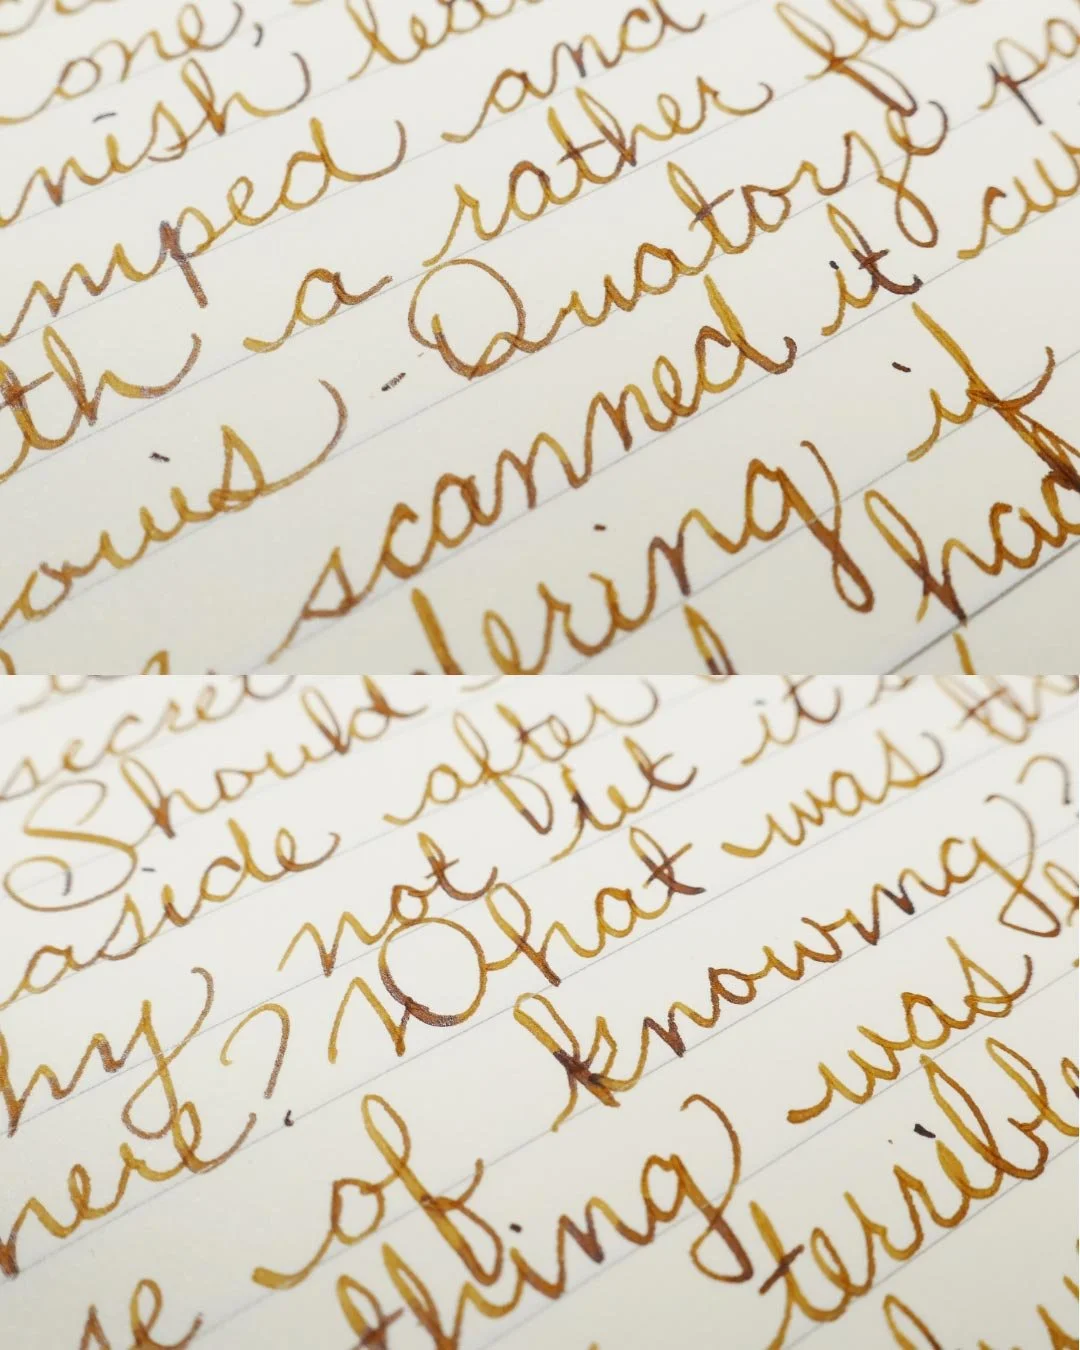 one,
nish lea
mped and
th a rather flo
ouis - Quatorze pa
scanned it cu
dering if
had
secret
Should
aside after
hy not let it s
here ? What was th
se of knowing?
thing was
terrible